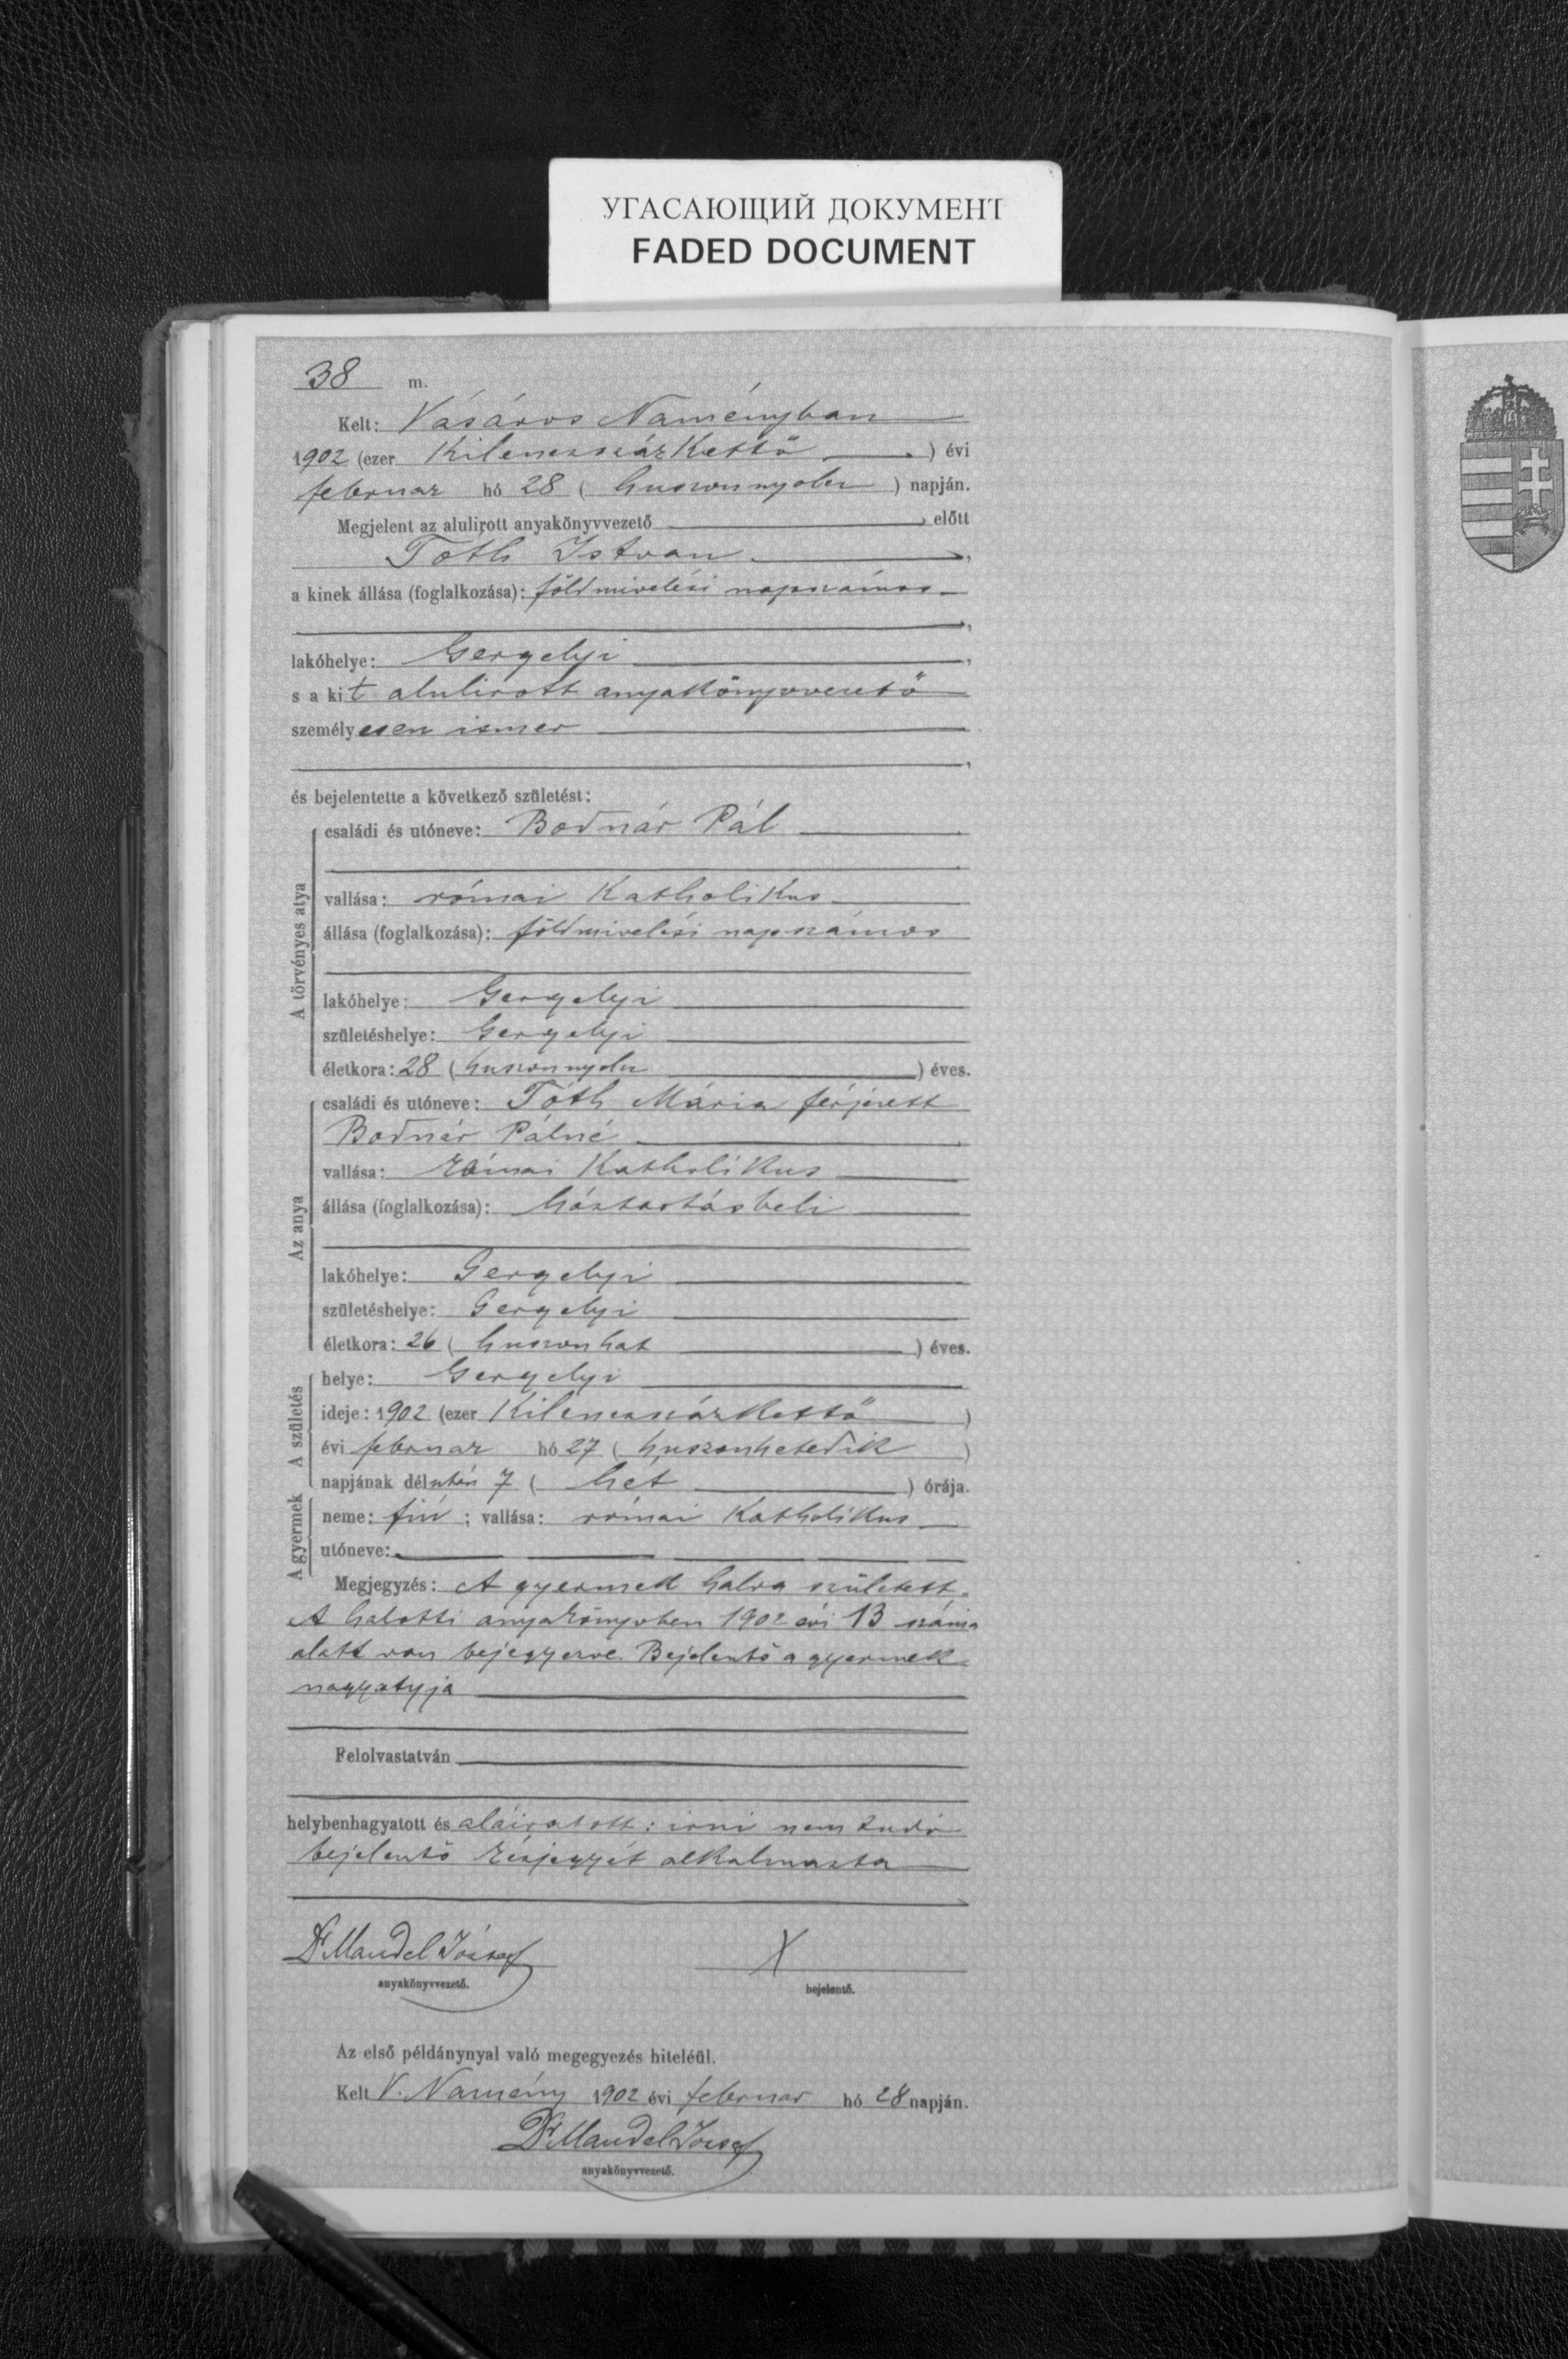 УГАСАЮЩИЙ ДОКУМЕНТ
FADED DOCUMENT
38 m.
Kelt: Vásáros Naményban
1902 (ezer Kilenczszáz Kettő ) évi
februar hó 28 ( huszonnyolcz ) napján.
Megjelent az alulirott anyakönyvvezető előtt
Toth Istvan,
a kinek állása (foglalkozása): földmivelési napszámos
lakóhelye: Gergelyi,
s a kit alulirott anyakönyvvezető
személyesen ismer,
és bejelentette a következő születést:
A törvényes atya
családi és utóneve: Bodnár Pál
vallása: római Katholikus
állása (foglalkozása): földmivelési napszámos
lakóhelye: Gergelyi
születéshelye: Gergelyi
életkora: 28 (huszonnyolcz ) éves.
Az anya
családi és utóneve: Tóth Mária férjezett
Bodnár Pálné
vallása: Római Katholikus
állása (foglalkozása): háztartásbeli
lakóhelye: Gergelyi
születéshelye: Gergelyi
életkora: 26 ( huszonhat ) éves.
A születés
helye: Gergelyi
ideje: 1902 (ezer Kilenczszáz Kettő )
évi februar hó 27 ( huszonhetedik )
napjának délután 7 ( hét ) órája.
A gyermek
neme: fiú ; vallása: római Katholikus
utóneve:
Megjegyzés: A gyermek halva született.
A halotti anyakönyvben 1902 évi 13 száma
alatt van bejegyezve. Bejelentő a gyermek
nagyatyja
Felolvastatván
helybenhagyatott és aláiratott: irni nem tudó
bejelentő kézjegyét alkalmazta
Dr Mandel József X
anyakönyvvezető. bejelentő.
Az első példánynyal való megegyezés hiteléül.
Kelt V. Namény 1902 évi februar hó 28 napján.
Dr Mandel József
anyakönyvvezető.